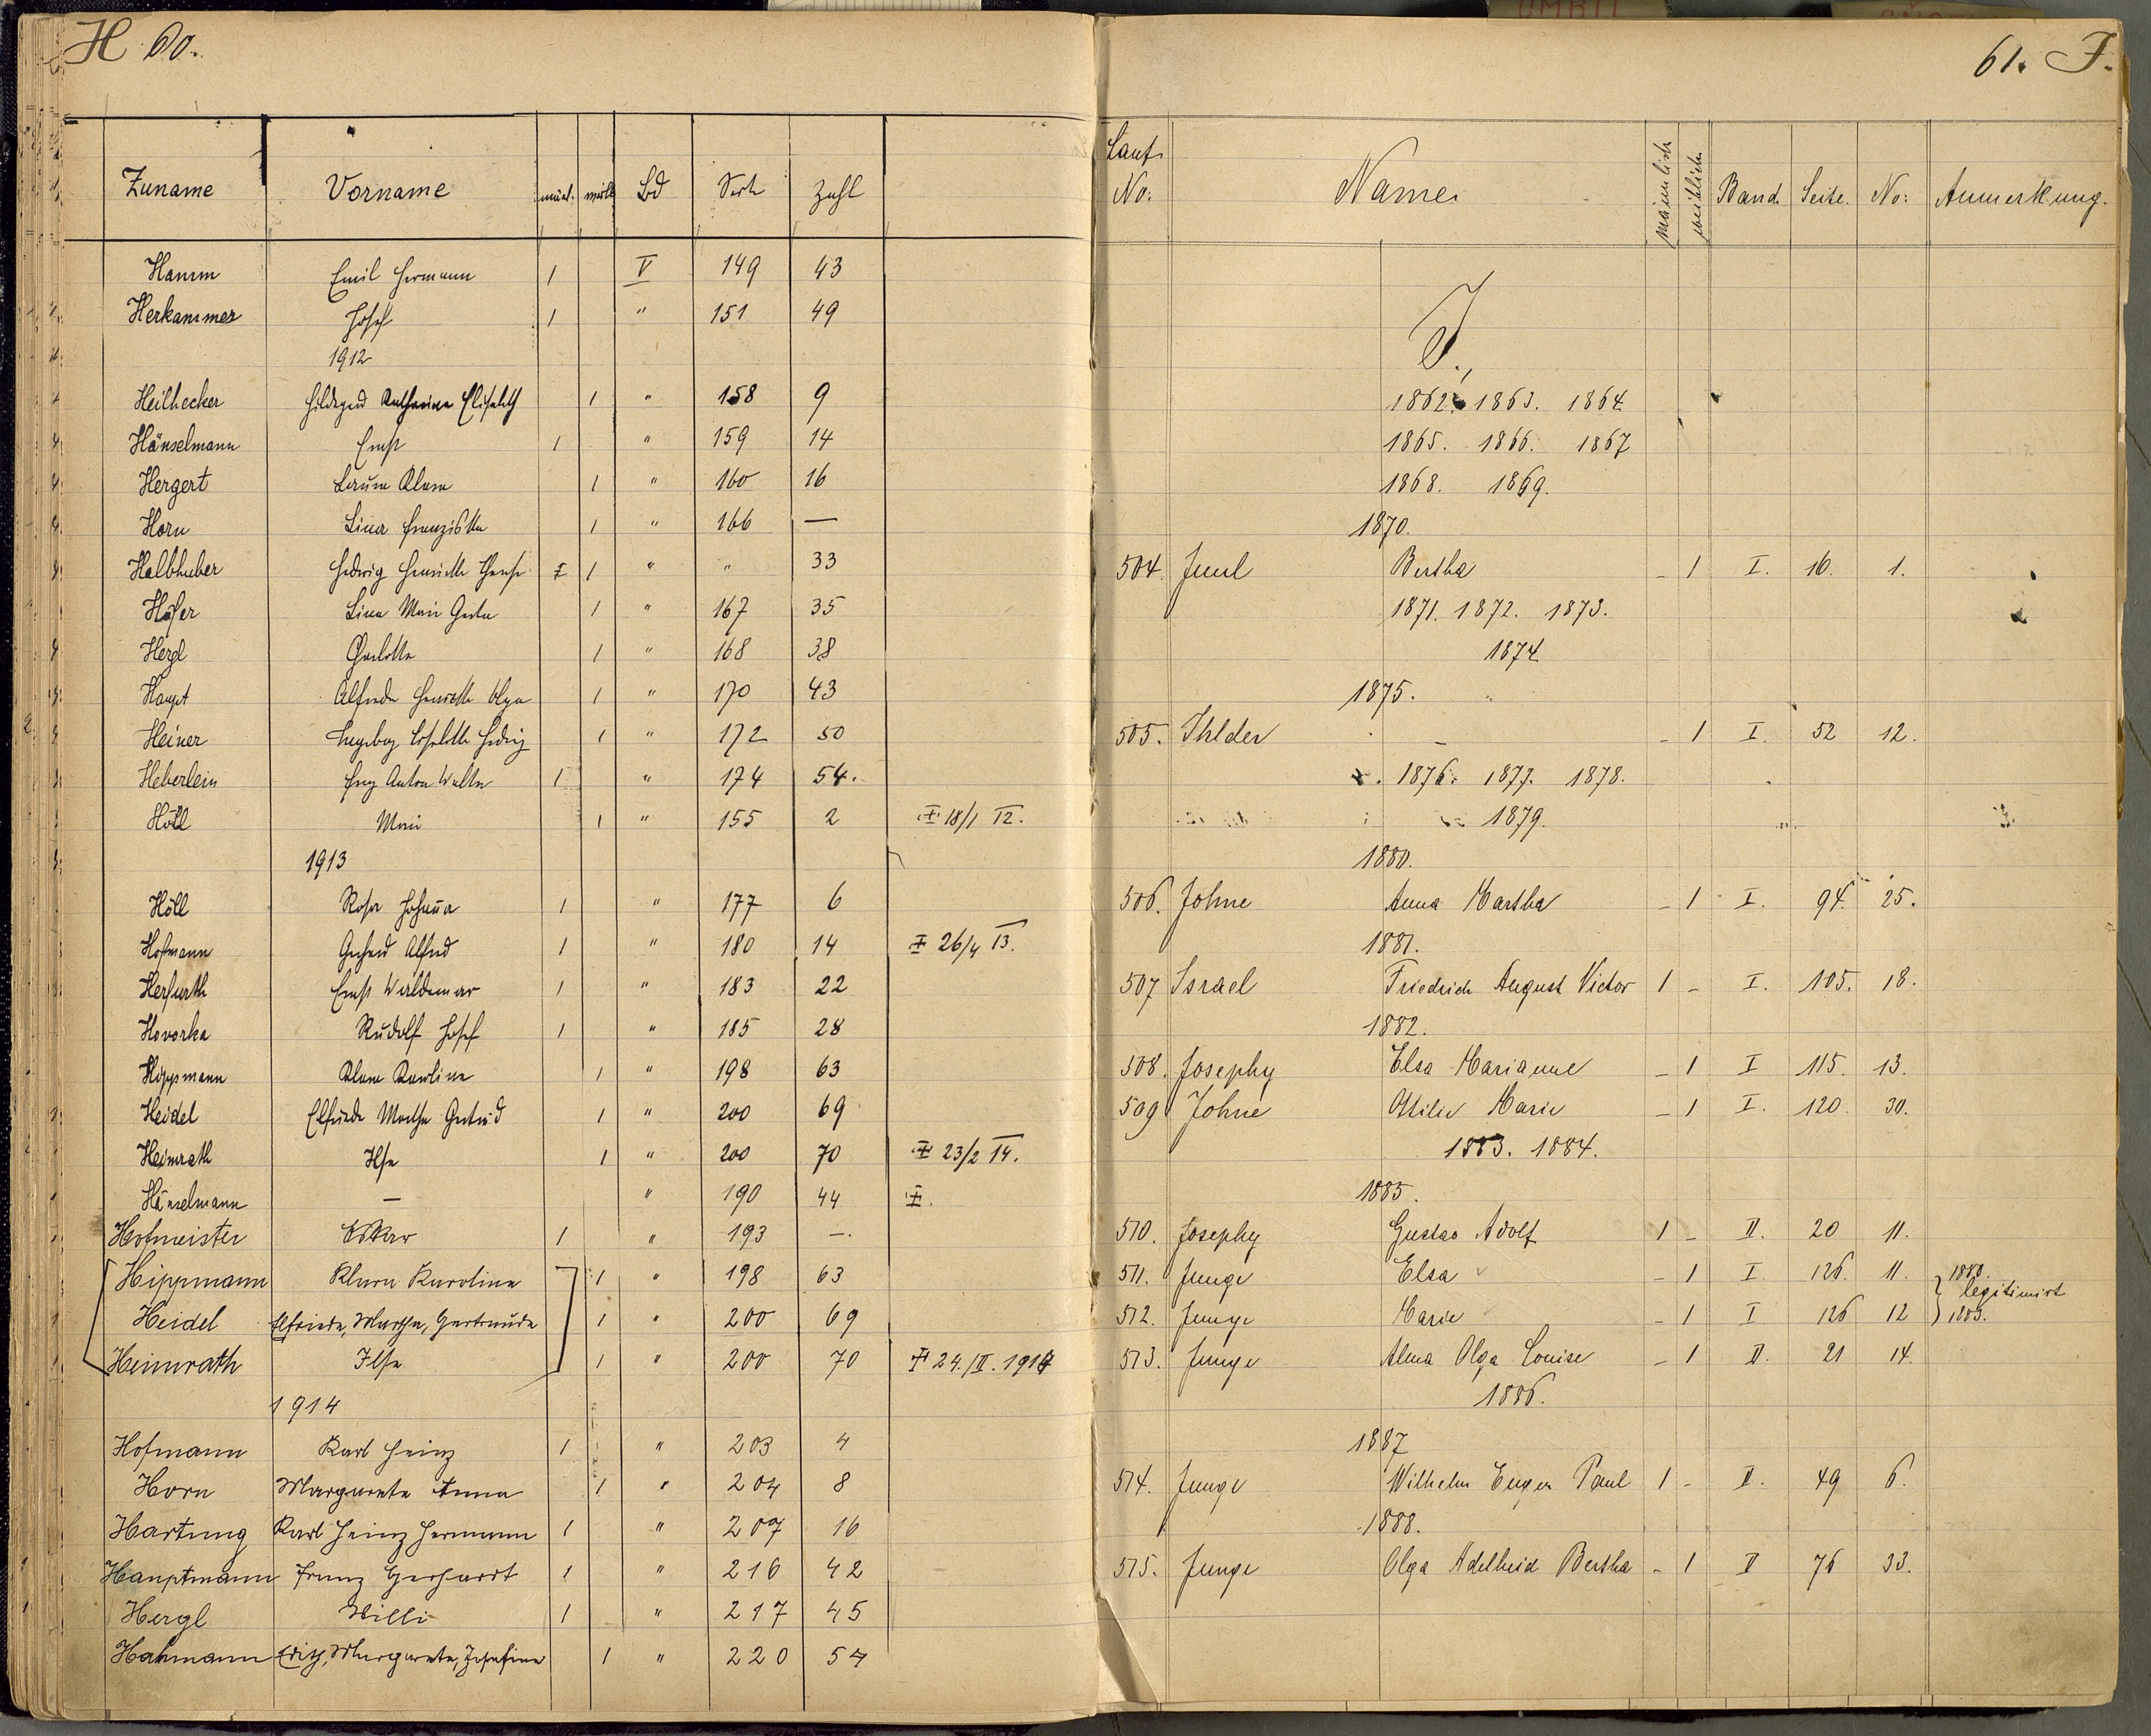 H 60.
Zuname Vorname männl. weibl. Bd Seite Zahl
Hamm Emil Hermann 1 V 149 43
Herkammer Josef 1 " 151 49
1912
Heilhecker Hildegard Katharina Elisabeth 1 " 158 9
Hänselmann Ernst 1 " 159 14
Hergert Laura Klara 1 " 160 16
Horn Lina Franziska 1 " 166 —
Halbhuber Hedwig Henriette 1 " " 33
Höfer Lina Marie Greta 1 " 167 35
Hergl Charlotte 1 " 168 38
Haupt Alfreda Henriette Olga 1 " 170 43
Heiner Ingeborg Liselotte Hedwig 1 " 172 50
Heberlein Anton Walter 1 " 174 54.
Höll Marie 1 " 155 2 ± 18/1 12.
1913
Höll Rosa Johanna 1 " 177 6
Hofmann Gerhard Alfred 1 " 180 14 ± 26/4 13.
Herfurth Ernst Waldemar 1 " 183 22
Hovorka Rudolf Josef 1 " 185 28
Hippmann Klara Karolina 1 " 198 63
Heidel Elfriede Martha Gertrud 1 " 200 69
Heimrath Ilse 1 " 200 70 ± 23/2 14.
Hänselmann — " 190 44 ±.
Hofmeister Oskar 1 " 193 —.
Hippmann Klara Karolina 1 " 198 63
Heidel Elfrieda, Martha, Gertrude 1 " 200 69
Heimrath Ilse 1 " 200 70 ± 24./II. 1914
1914
Hofmann Karl Heinz 1 " 203 4
Horn Margareta Anna 1 " 204 8
Hartung Karl Heinz Hermann 1 " 207 16
Hauptmann Franz Gerhardt 1 " 216 42
Hergl Willi 1 " 217 45
Hahmann Edith, Margareta, Josefina 1 " 220 54
61. J.
Lauf. No: Name. männlich weiblich Band. Seite. No: Anmerkung.
J.,
1862. 1863. 1864
1865. 1866. 1867
1868. 1869.
1870.
504. Juul Bertha - 1 I. 16. 1.
1871. 1872. 1873.
1874
1875.
505. Ihlder - - 1 I. 52 12.
1876. 1877. 1878.
1879.
1880.
506. Johne Anna Martha - 1 I. 94. 25.
1881.
507 Israel Friedrich August Victor 1 - I. 105. 18.
1882.
508. Josephy Elsa Marianne - 1 I 115. 13.
509 Johne Ottilie Marie - 1 I. 120. 30.
1883. 1884.
1885.
510. Josephy Gustav Adolf 1 - II. 20 11.
511. Junge Elsa - 1 I 126. 11. legitimirt
512. Junge Marie - 1 I 126 12 1883.
513. Junge Alma Olga Louise - 1 II. 21 14.
1886.
1887
514. Junge Wilhelm Eugen Paul 1 - II. 49 6.
1888.
515. Junge Olga Adelheid Bertha - 1 II 76 33.